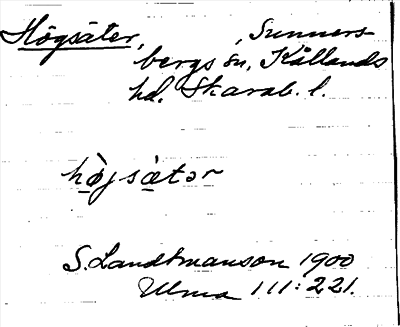 Högsäter, , Sunners-
bergs sn, Kållands
hd. Skarab. l.
hòjsätər
S. Landtmanson 1900
Ulma 111:221.